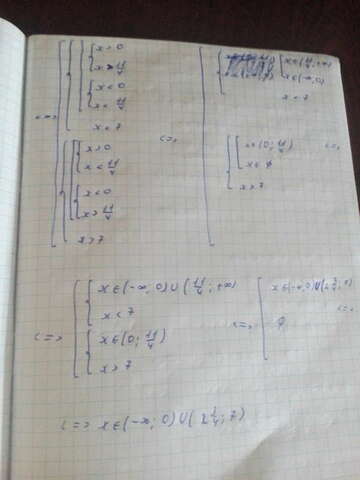 x > 0
x > 11/4
x < 0
x < 11/4
x < 7
x > 0
x < 11/4
x < 0
x > 11/4
x > 7
<=>
x ∈ (11/4; +∞)
x ∈ (-∞; 0)
x < 7
x ∈ (0; 11/4)
x ∈ ∅
x > 7
<=>
<=>
x ∈ (-∞; 0) U (11/4; +∞)
x < 7
x ∈ (0; 11/4)
x > 7
<=>
x ∈ (-∞; 0) U
∅
<=>
<=> x ∈ (-∞; 0) U (2 3/4; 7)